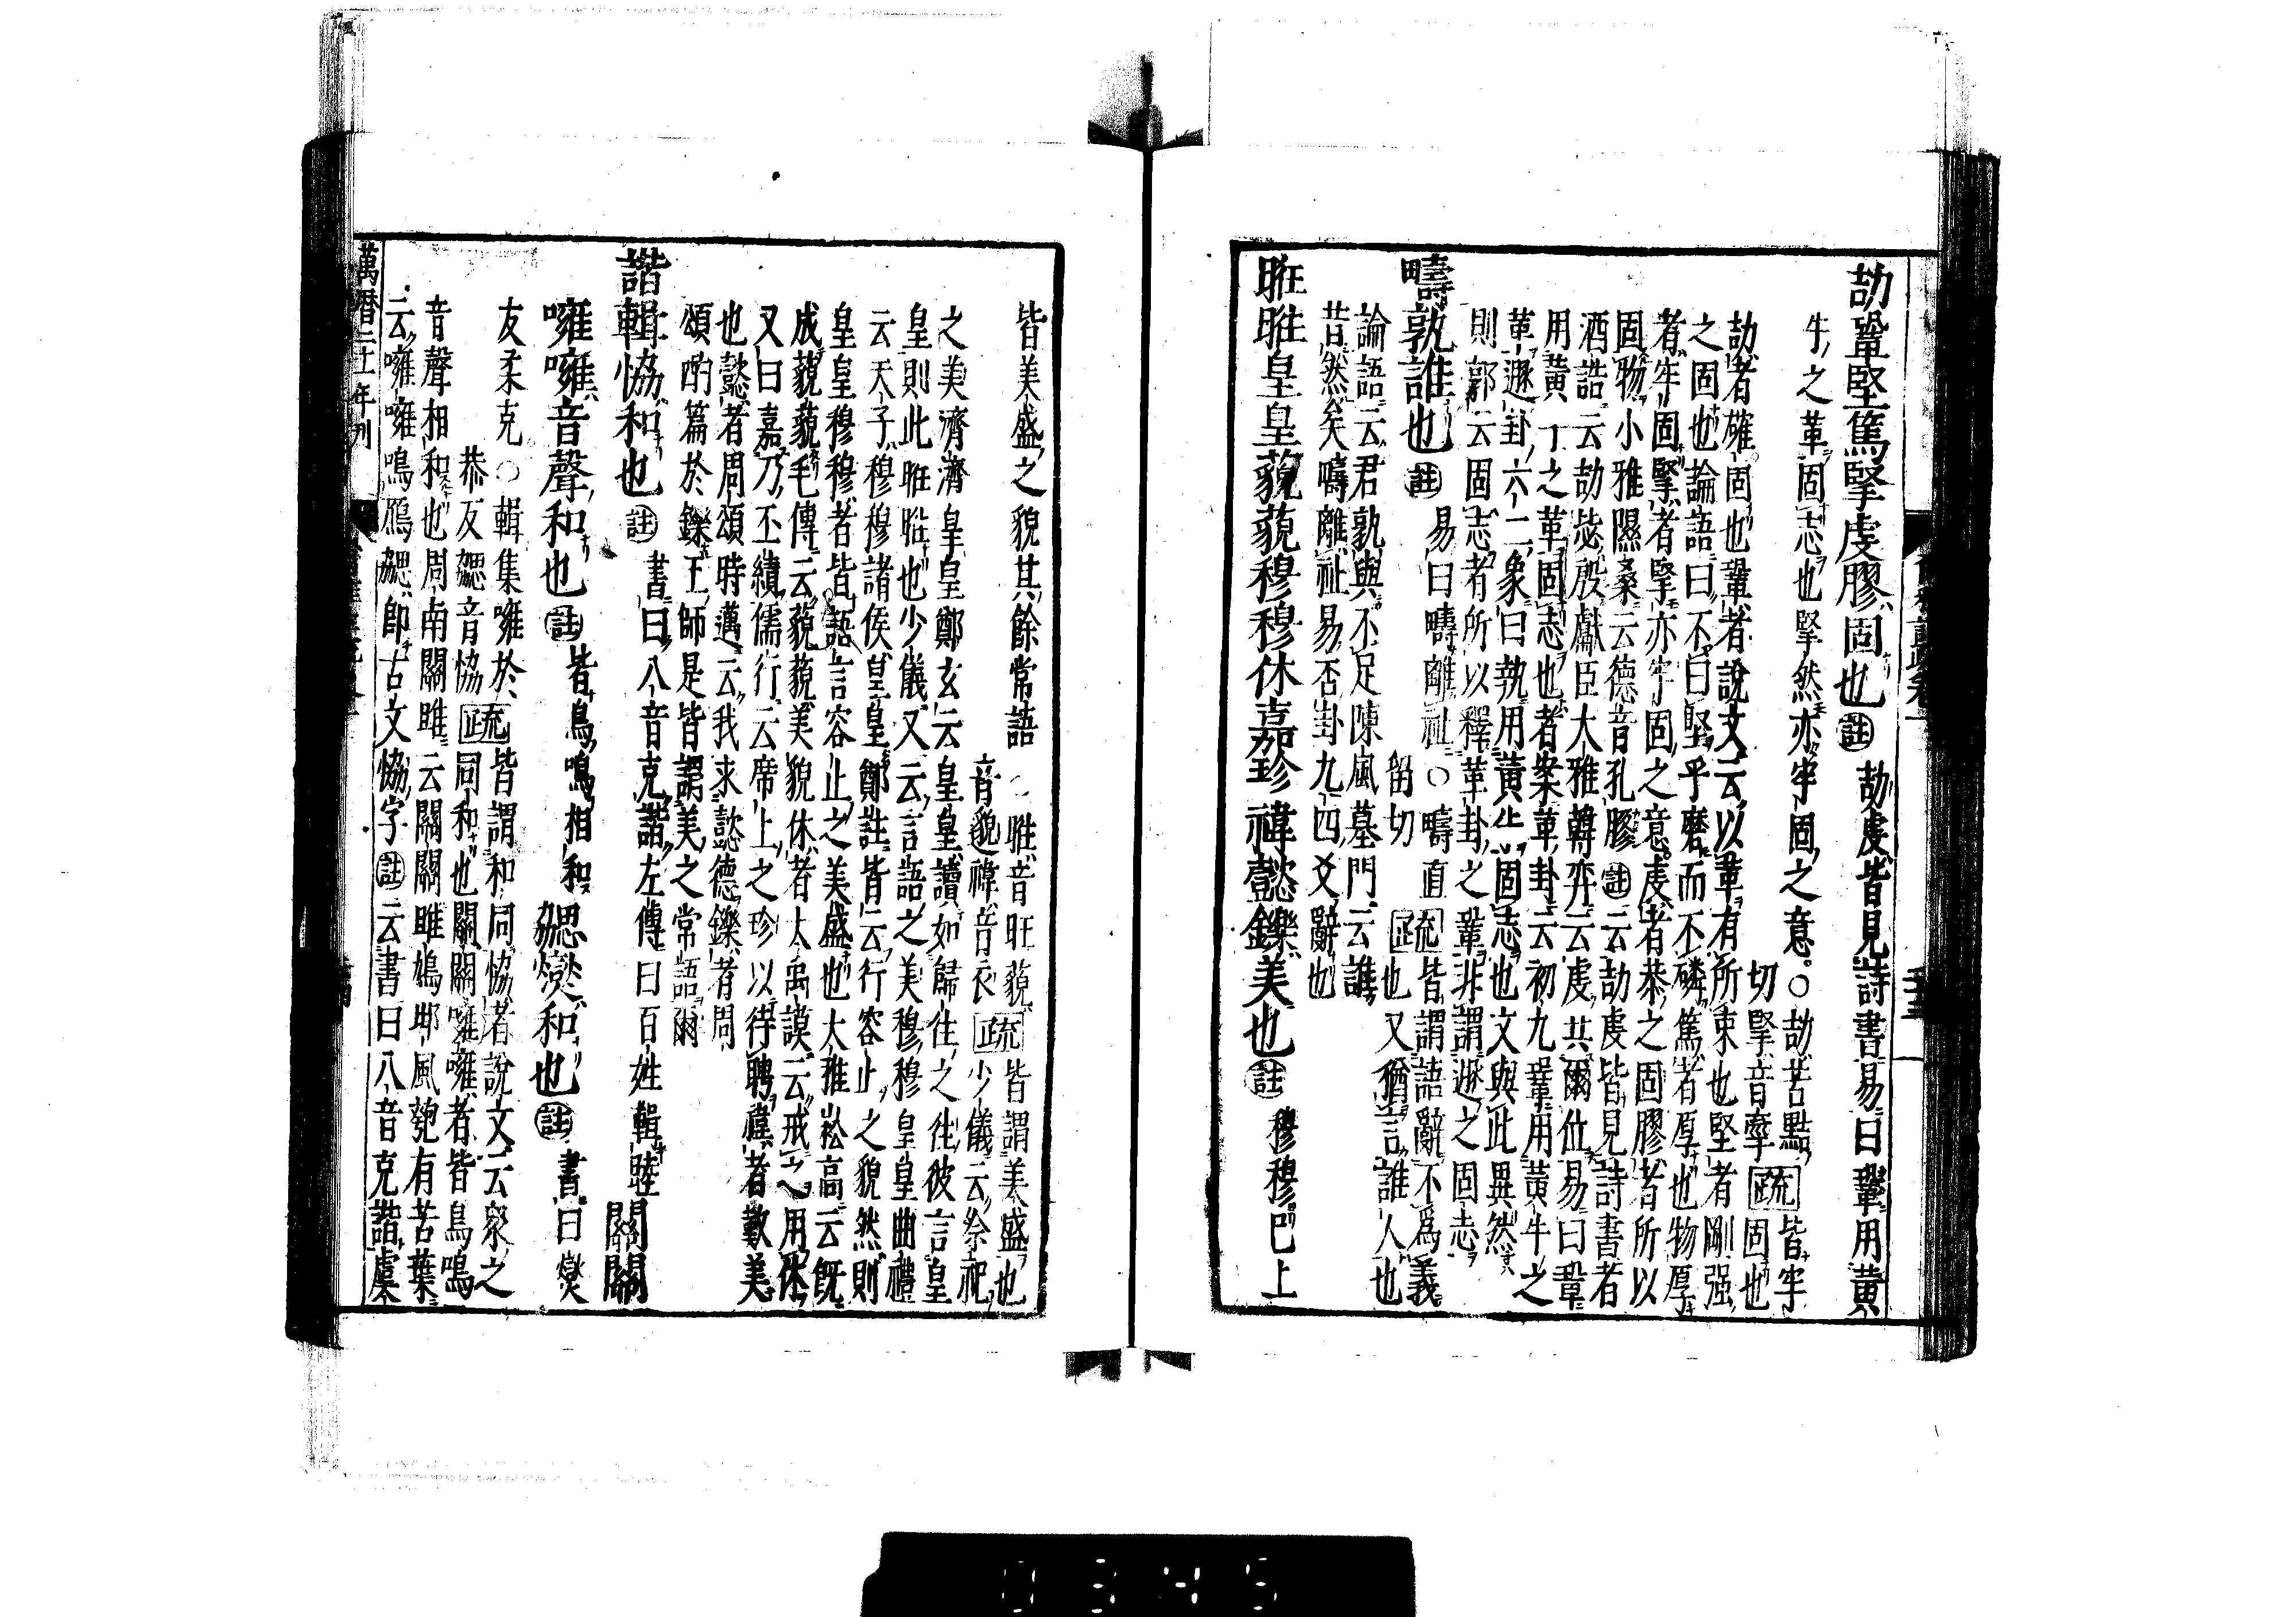 劼鞏堅篤掔虔膠固也註劼虔皆見詩書易曰鞏用黃
牛之革固志也掔然亦牢固之意○劼苦黠
切掔音牽疏皆牢固也
劼者確固也鞏者說文云以韋有所束也堅者剛强
之固也論語曰不曰堅乎磨而不磷篤者厚也物厚
者牢固掔者掔亦牢固之意虔者恭之固膠者所以
固物小雅隰桑云德音孔膠註云劼虔皆見詩書者
酒誥云劼毖殷獻臣大雅韓奕云虔共爾位易曰鞏
用黃牛之革固志也者案革卦云初九鞏用黃牛之
革遯卦六二象曰執用黃牛固志也文與此異然
則郭云固志者所以釋革卦之鞏非謂遯之固志
疇孰誰也註易曰疇離祉○疇直
留切疏皆謂語辭不爲義
也又猶言誰人也
論語云君孰與不足陳風墓門云誰
昔然矣疇離祉易否卦九四爻辭也
暀暀皇皇藐藐穆穆休嘉珍褘懿鑠美也註穆穆巴上
皆美盛之貌其餘常語○暀音旺藐
音邈褘音衣疏皆謂美盛也
少儀云祭祀
之美濟濟皇皇鄭玄云皇皇讀如歸往之往彼言皇
皇則此暀暀也少儀又云言語之美穆穆皇皇曲禮
云天子穆穆諸侯皇皇鄭註皆云行容止之貌然則
皇皇穆穆者皆語言容止之美盛也大雅崧高云旣
成藐藐毛傳云藐藐美貌休者大禹謨云戒之用休
又曰嘉乃丕績儒行云席上之珍以待聘褘者歎美
也懿者周頌時邁云我求懿德鑠者周
頌酌篇於鑠王師是皆謂美之常語爾
諧輯協和也註書曰八音克諧左傳曰百姓輯睦關關
噰噰音聲和也註皆鳥鳴相和勰燮和也註書曰燮
友柔克○輯集噰於
恭反勰音協疏皆謂和同協者說文云眾之
同和也關關噰噰者皆鳥鳴
音聲相和也周南關雎云關關雎鳩邶風匏有苦葉
云噰噰鳴鴈勰即古文協字註云書曰八音克諧虞
萬曆二十一年刊